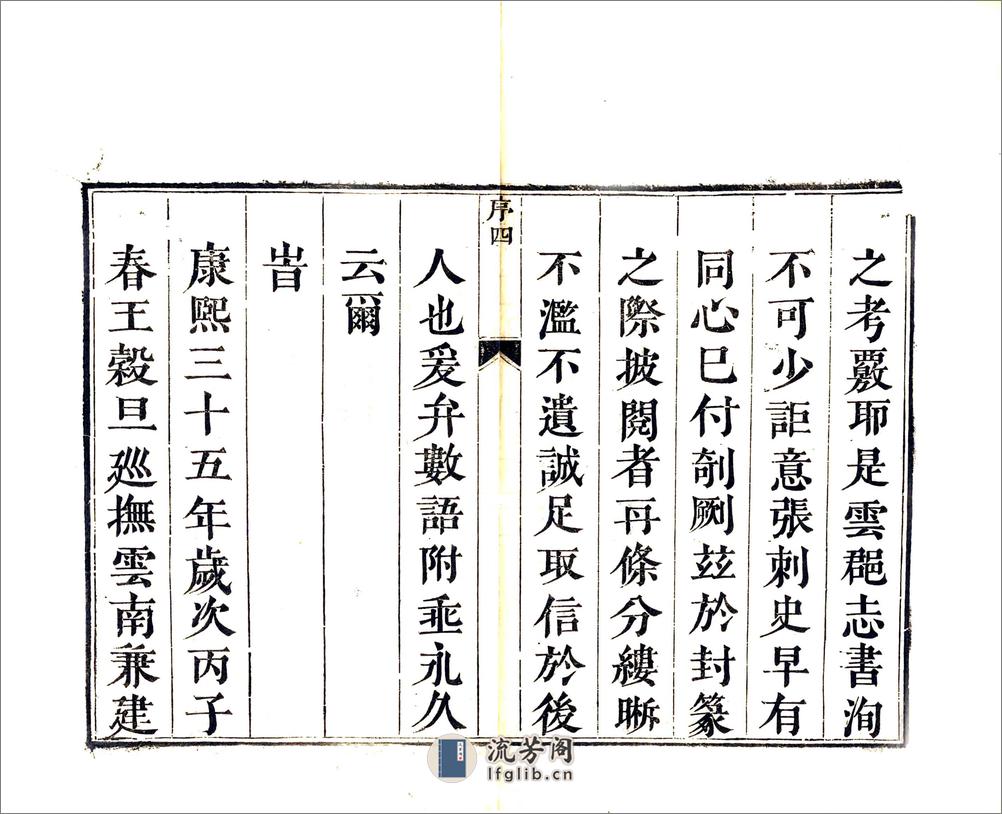 之考覈耶是雲郡志書洵
不可少詎意張刺史早有
同心已付剞劂兹於封篆
之際披閱者再條分縷晰
不濫不遺誠足取信於後
序四
人也爰弁數語附垂永久
云爾
旹
康熙三十五年歲次丙子
春王穀旦巡撫雲南兼建
流芳阁
lfglib.cn